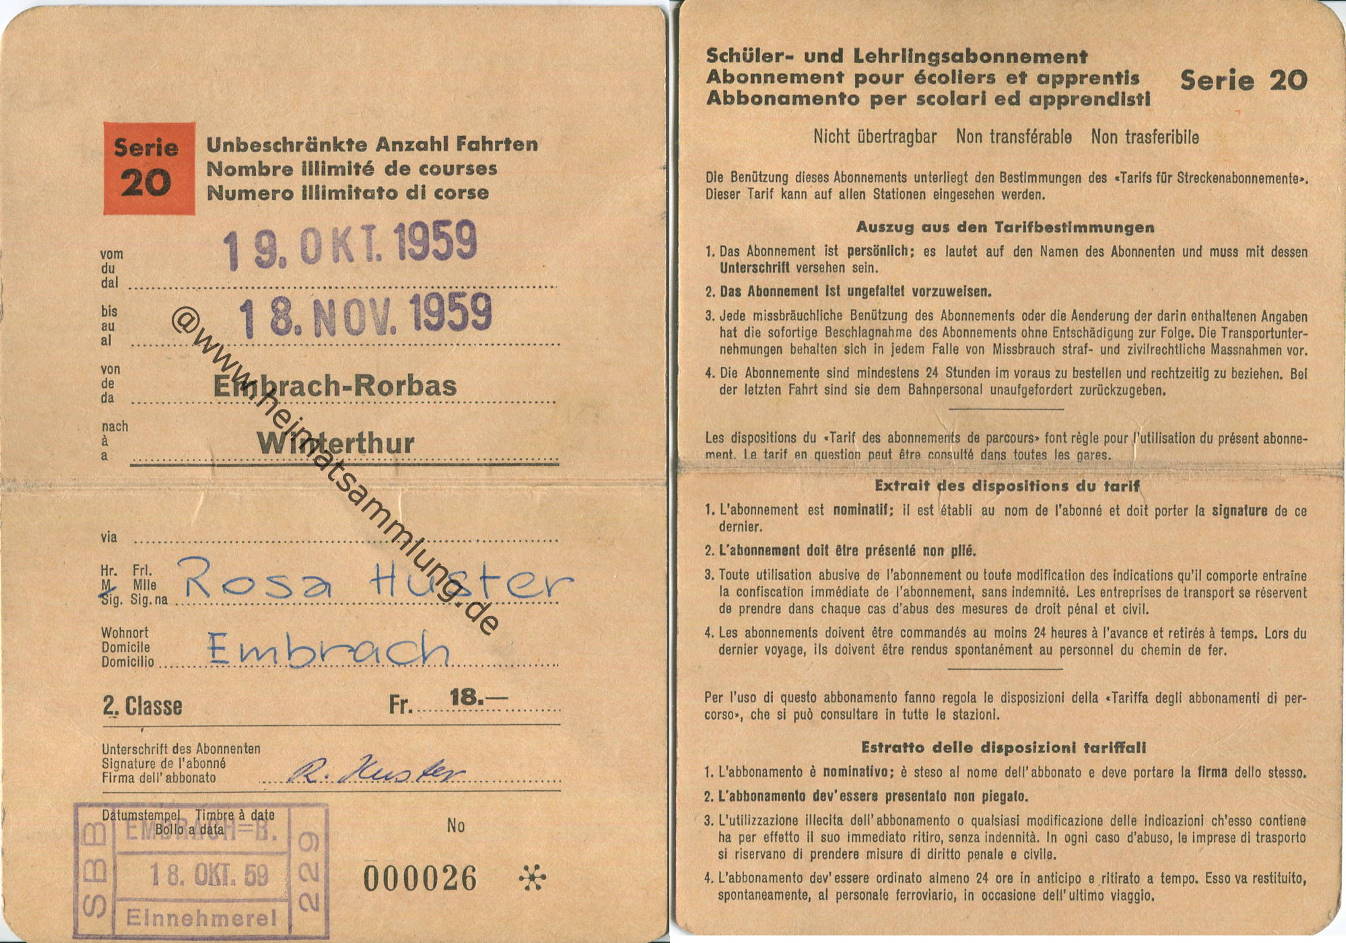 Serie
20
Unbeschränkte Anzahl Fahrten
Nombre illimité de courses
Numero illimitato di corse
vom
du
dal
19. OKT. 1959
bis
au
al
18. NOV. 1959
von
de
da
Embrach-Rorbas
nach
à
a
Winterthur
via
Hr. Frl.
M. Mlle
Sig. Sig.na
Rosa Huster
Wohnort
Domicile
Domicilio
Embrach
2. Classe Fr. 18.—
Unterschrift des Abonnenten
Signature de l'abonné
Firma dell'abbonato
R. Huster
Datumstempel Timbre à date
Bollo a data
SBB
EMBRACH=B.
18. OKT. 59
Einnehmerei
229
No
000026
@www.heimatsammlung.de
Schüler- und Lehrlingsabonnement
Abonnement pour écoliers et apprentis
Abbonamento per scolari ed apprendisti
Serie 20
Nicht übertragbar Non transférable Non trasferibile
Die Benützung dieses Abonnements unterliegt den Bestimmungen des «Tarifs für Streckenabonnemente».
Dieser Tarif kann auf allen Stationen eingesehen werden.
Auszug aus den Tarifbestimmungen
1. Das Abonnement ist persönlich; es lautet auf den Namen des Abonnenten und muss mit dessen
Unterschrift versehen sein.
2. Das Abonnement ist ungefaltet vorzuweisen.
3. Jede missbräuchliche Benützung des Abonnements oder die Aenderung der darin enthaltenen Angaben
hat die sofortige Beschlagnahme des Abonnements ohne Entschädigung zur Folge. Die Transportunter-
nehmungen behalten sich in jedem Falle von Missbrauch straf- und zivilrechtliche Massnahmen vor.
4. Die Abonnemente sind mindestens 24 Stunden im voraus zu bestellen und rechtzeitig zu beziehen. Bei
der letzten Fahrt sind sie dem Bahnpersonal unaufgefordert zurückzugeben.
Les dispositions du «Tarif des abonnements de parcours» font règle pour l'utilisation du présent abonne-
ment. Le tarif en question peut être consulté dans toutes les gares.
Extrait des dispositions du tarif
1. L'abonnement est nominatif; il est établi au nom de l'abonné et doit porter la signature de ce
dernier.
2. L'abonnement doit être présenté non plié.
3. Toute utilisation abusive de l'abonnement ou toute modification des indications qu'il comporte entraîne
la confiscation immédiate de l'abonnement, sans indemnité. Les entreprises de transport se réservent
de prendre dans chaque cas d'abus des mesures de droit pénal et civil.
4. Les abonnements doivent être commandés au moins 24 heures à l'avance et retirés à temps. Lors du
dernier voyage, ils doivent être rendus spontanément au personnel du chemin de fer.
Per l'uso di questo abbonamento fanno regola le disposizioni della «Tariffa degli abbonamenti di per-
corso», che si può consultare in tutte le stazioni.
Estratto delle disposizioni tariffali
1. L'abbonamento è nominativo; è steso al nome dell'abbonato e deve portare la firma dello stesso.
2. L'abbonamento dev'essere presentato non piegato.
3. L'utilizzazione illecita dell'abbonamento o qualsiasi modificazione delle indicazioni ch'esso contiene
ha per effetto il suo immediato ritiro, senza indennità. In ogni caso d'abuso, le imprese di trasporto
si riservano di prendere misure di diritto penale e civile.
4. L'abbonamento dev'essere ordinato almeno 24 ore in anticipo e ritirato a tempo. Esso va restituito,
spontaneamente, al personale ferroviario, in occasione dell'ultimo viaggio.